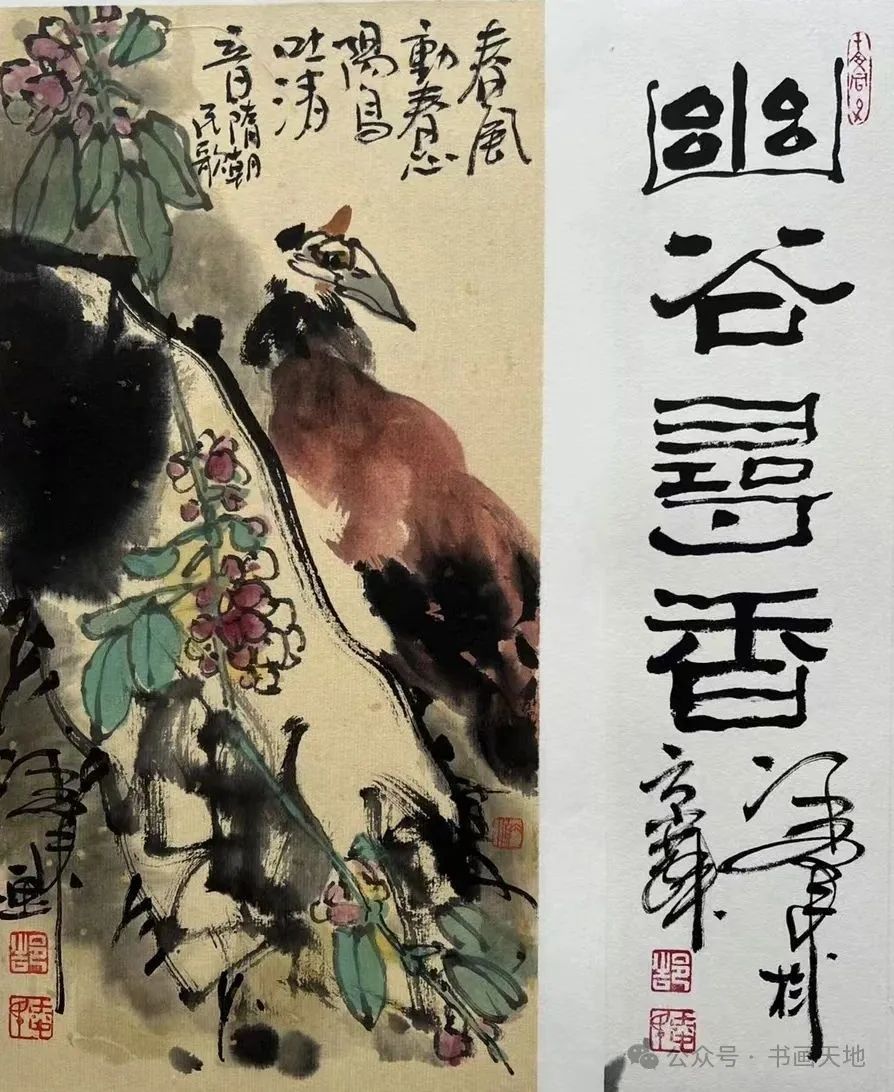 幽谷尋香
京華
春風
動春心
陽鳥
吐清
音隋朝
民歌
公众号 · 书画天地